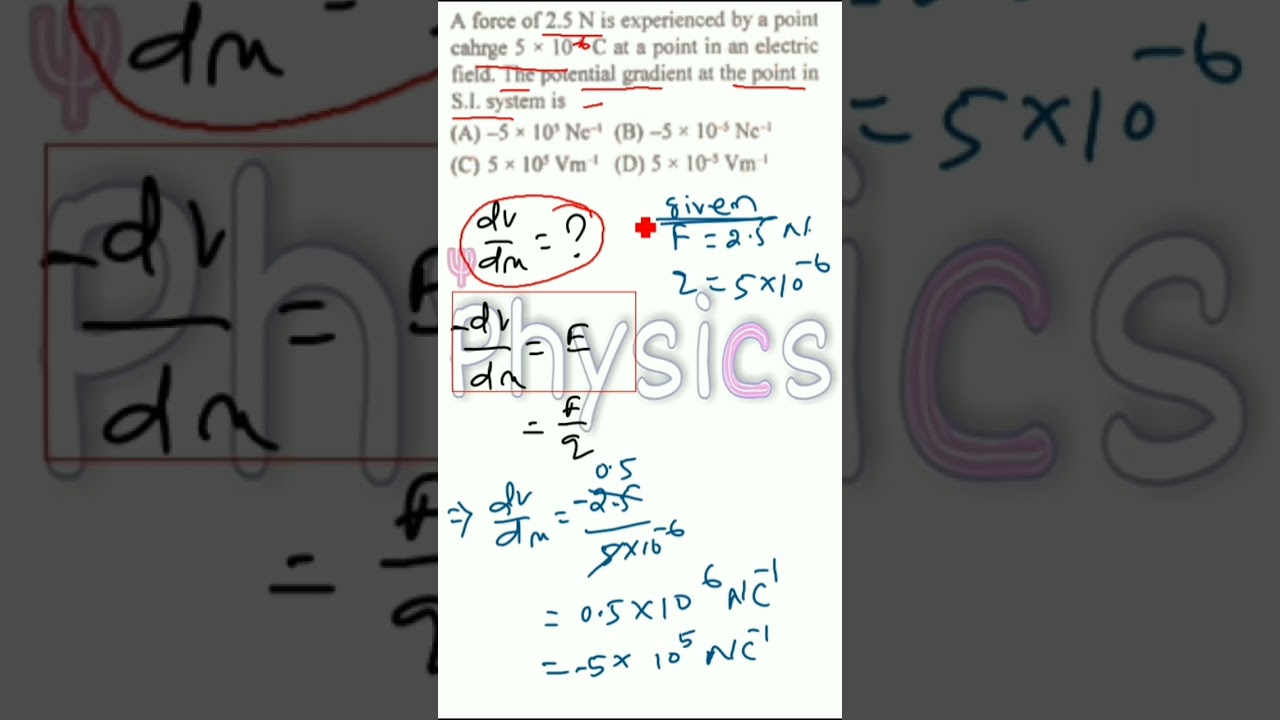 A force of 2.5 N is experienced by a point
cahrge 5 × 10⁻⁶ C at a point in an electric
field. The potential gradient at the point in
S.I. system is
(A) –5 × 10⁵ Nc⁻¹ (B) –5 × 10⁻⁵ Nc⁻¹
(C) 5 × 10⁵ Vm⁻¹ (D) 5 × 10⁻⁵ Vm⁻¹
dv/dx = ?
given
F = 2.5 N
q = 5×10⁻⁶
-dv/dx = E
= F/q
⇒ dv/dx = -2.5/5×10⁻⁶
0.5
= 0.5×10⁶ NC⁻¹
= -5× 10⁵ NC⁻¹
ψ Physics
dx
= 5×10⁻⁶
-dv/dx =
=